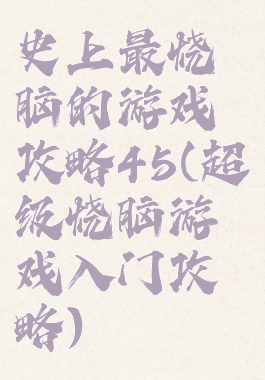 史上最烧
脑的游戏
攻略45(超
级烧脑游
戏入门攻
略)